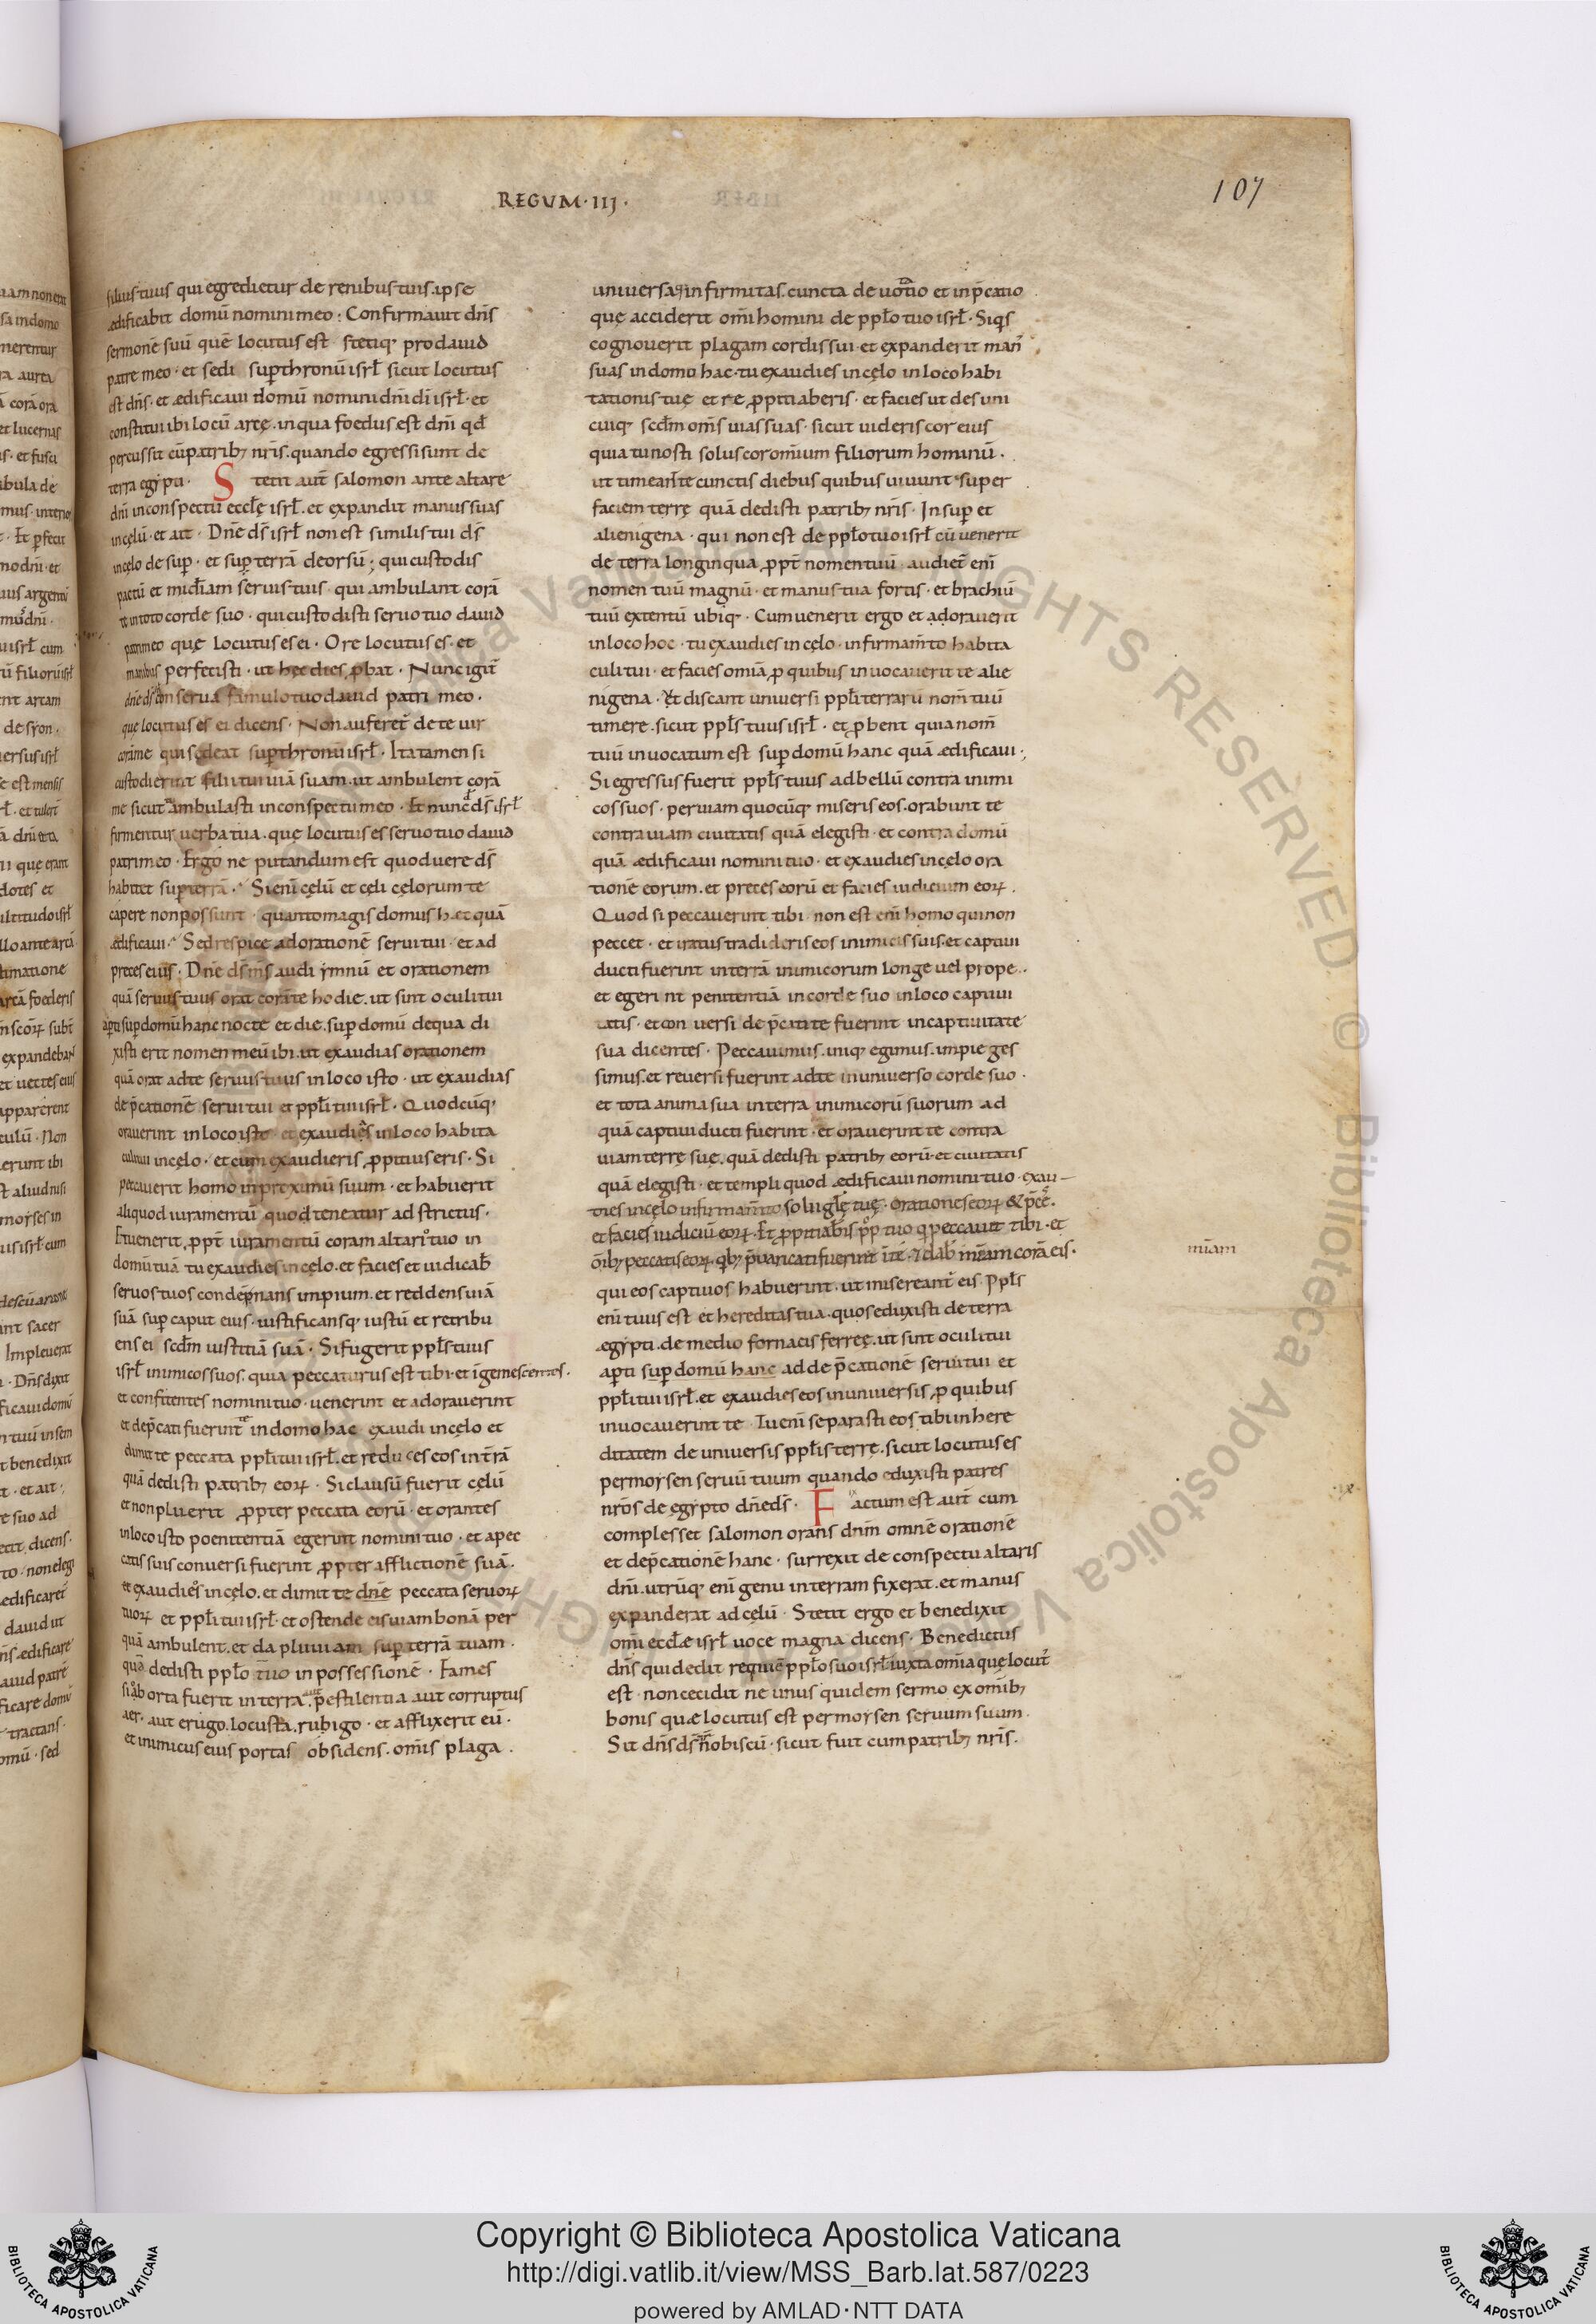 REGUM·III·
107
filius tuus qui egredietur de renibus tuis. ipse
ædificabit domū nomini meo; Confirmauit dn̄s
sermonē suū quē locutus est stetiq; pro dauid
patre meo· et sedi sup̄ thronū isrł sicut locutus
est dn̄s· et ædificaui domū nomini dn̄i dī isrł· et
constitui ibi locū arcę. in qua foedus est dn̄i qd̄
percussit cū patribȝ nr̄is. quando egressi sunt de
terra egypti· Stetit aut̄ salomon ante altare
dn̄i in conspectu eccłę isrł. et expandit manus suas
in cęlū· et ait· Dn̄e ds̄ isrł non est similis tui ds̄
in cęlo de sup̄· et sup̄ terrā deorsū; qui custodis
pactū et mīdiam seruis tuis· qui ambulant corā
te in toto corde suo· qui custodisti seruo tuo dauid
patri meo que locutus es ei· Ore locutus es· et
manibus perfecisti· ut hęc dies ꝓbat· Nunc igit̄
dn̄e ds̄ conserua famulo tuo dauid patri meo·
quę locutus es ei dicens· Non auferet̄ de te uir
corā me qui sedeat sup̄ thronū isrł· Ita tamen si
custodierint filii tui uiā suam. ut ambulent corā
me sicut tu ambulasti in conspectu meo· Et nunc ds̄ isrł
firmentur uerba tua. quę locutus es seruo tuo dauid
patri meo· Ergo ne putandum est quod uere ds̄
habitet sup̄ terrā· Si enī cęlū et cęli cęlorum te
capere non possunt· quanto magis domus hæc quā
ædificaui· Sed respice ad orationē serui tui· et ad
preces eius· Dn̄e ds̄ ms̄ audi ymnū et orationem
quā seruus tuus orat corā te hodie. ut sint oculi tui
apti sup̄ domū hanc nocte et die. sup̄ domū de qua di
xisti erit nomen meū ibi. ut exaudias orationem
quā orat ad te seruus tuus in loco isto· ut exaudias
dep̄cationē serui tui et ppłi tui isrł· Quodcūq;
orauerint in loco isto et exaudies in loco habita
culi tui in cęlo· et cum exaudieris ꝓpitius eris· Si
peccauerit homo in proximū suum· et habuerit
aliquod iuramentū quod teneatur adstrictus·
Et uenerit ꝓpt̄ iuramentū coram altari tuo in
domū tuā tu exaudies in cęlo. et facies et iudicab̄
seruos tuos condēpnans impium. et reddens uiā
suā sup̄ caput eius· iustificansq; iustū et retribu
ens ei scdm̄ iustitiā suā· Si fugerit ppłs tuus
isrł inimicos suos. quia peccaturus est tibi· et ī gemescentes·
et confitentes nomini tuo· uenerint et adorauerint
et dep̄cati fuerint te in domo hac exaudi in cęlo et
dimitte peccata ppłi tui isrł. et reduces eos in t̄rā
quā dedisti patribȝ eorꝝ· Si clausū fuerit cęlū
et non pluerit ꝓpter peccata eorū· et orantes
in loco isto poenitentiā egerint nomini tuo· et a pec
catis suis conuersi fuerint ꝓpter afflictionē suā·
et exaudies in cęlo. et dimitte dn̄e peccata seruorꝝ
tuorꝝ et ppłi tui isrł· et ostende eis uiam bonā per
quā ambulent. et da pluuiam sup̄ terrā tuam·
quā dedisti ppło tuo in possessionē· Fames
si aborta fuerit in terra. aut pestilentia aut corruptus
aer· aut erugo. locusta. rubigo· et afflixerit eū·
et inimicus eius portas obsidens. omīs plaga·
uniuersa infirmitas. cuncta deuotatio et inp̄catio
quę acciderit omī homini de ppło tuo isrł· Siqs
cognouerit plagam cordis sui· et expanderit man
suas in domo hac· tu exaudies in cęlo in loco habi
tationis tuę et re ꝓpitiaberis· et facies ut des uni
cuiq; scdm̄ omīs uias suas· sicut uideris cor eius
quia tu nosti solus cor omīum filiorum hominū·
ut timeant te cunctis diebus quibus uiuunt super
faciem terrę quā dedisti patribȝ nr̄is· Insup̄ et
alienigena· qui non est de ppło tuo isrł cū uenerit
de terra longinqua ꝓpt̄ nomen tuū audiet̄ enī
nomen tuū magnū· et manus tua fortis· et brachiū
tuū extentū ubiq;· Cum uenerit ergo et adorauerit
in loco hoc· tu exaudies in cęlo· in firmam̄to habita
culi tui· et facies omīa ꝓ quibus inuocauerit te alie
nigena· Et discant uniuersi ppłi terrarū nom̄ tuū
timere. sicut ppłs tuus isrł· et ꝓbent quia nom̄
tuū inuocatum est sup̄ domū hanc quā ædificaui;
Si egressus fuerit ppłs tuus ad bellū contra inimi
cos suos· per uiam quocūq; miseris eos. orabunt te
contra uiam ciuitatis quā elegisti· et contra domū
quā ædificaui nomini tuo· et exaudies in cęlo ora
tionē eorum. et preces eorū et facies iudicium eorꝝ·
Quod si peccauerint tibi· non est enī homo qui non
peccet· et iratus tradideris eos inimicis suis. et captiui
ducti fuerint in terrā inimicorum longe uel prope·
et egerint penitentiā in corde suo in loco captiui
tatis· et conuersi dep̄cati te fuerint in captiuitate
sua dicentes· Peccauimus. iniq; egimus. impie ges
simus. et reuersi fuerint ad te in uniuerso corde suo·
et tota anima sua in terra inimicorū suorum ad
quā captiui ducti fuerint· et orauerint te contra
uiam terrę suę. quā dedisti patribȝ eorū· et ciuitatis
quā elegisti· et templi quod ædificaui nomini tuo· exau
dies in cęlo in firmam̄to solii głę tuę· orationes eorꝝ & p̄ces·
et facies iudiciū eorꝝ· Et ꝓpitiab̄is ppło tuo q peccauit tibi· et
omībȝ peccatis eorꝝ. qbȝ p̄uaricati fuerint ī te· et dab̄ mīam corā eis·
mīam
qui eos captiuos habuerint. ut misereant̄ eis. Ppłs
enī tuus est et hereditas tua. quos eduxisti de terra
ægypti. de medio fornacis ferreę. ut sint oculi tui
apti sup̄ domū hanc ad dep̄cationē serui tui et
ppłi tui isrł. et exaudies eos in uniuersis ꝓ quibus
inuocauerint te· Tu enī separasti eos tibi in here
ditatem de uniuersis ppłis terrę. sicut locutus es
per moysen seruū tuum quando eduxisti patres
nr̄os de egypto dn̄e ds̄· Factum est aut̄ cum
complesset salomon orans dnm̄ omnē orationē
et dep̄cationē hanc· surrexit de conspectu altaris
dn̄i. utrūq; enī genu in terram fixerat. et manus
expanderat ad cęlū· Stetit ergo et benedixit
omī eccłæ isrł uoce magna dicens· Benedictus
dn̄s qui dedit requiē ppło suo isrł iuxta omīa quę locut̄
est· non cecidit ne unus quidem sermo ex omībȝ
bonis quæ locutus est per moysen seruum suum·
Sit dn̄s ds̄ nr̄ nobiscū· sicut fuit cum patribȝ nr̄is·
Copyright © Biblioteca Apostolica Vaticana
http://digi.vatlib.it/view/MSS_Barb.lat.587/0223
powered by AMLAD·NTT DATA